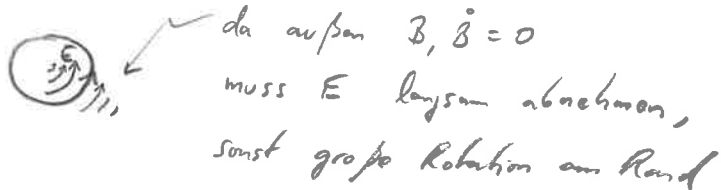 E
da außen B, Ḃ = 0
muss E langsam abnehmen,
sonst große Rotation am Rand